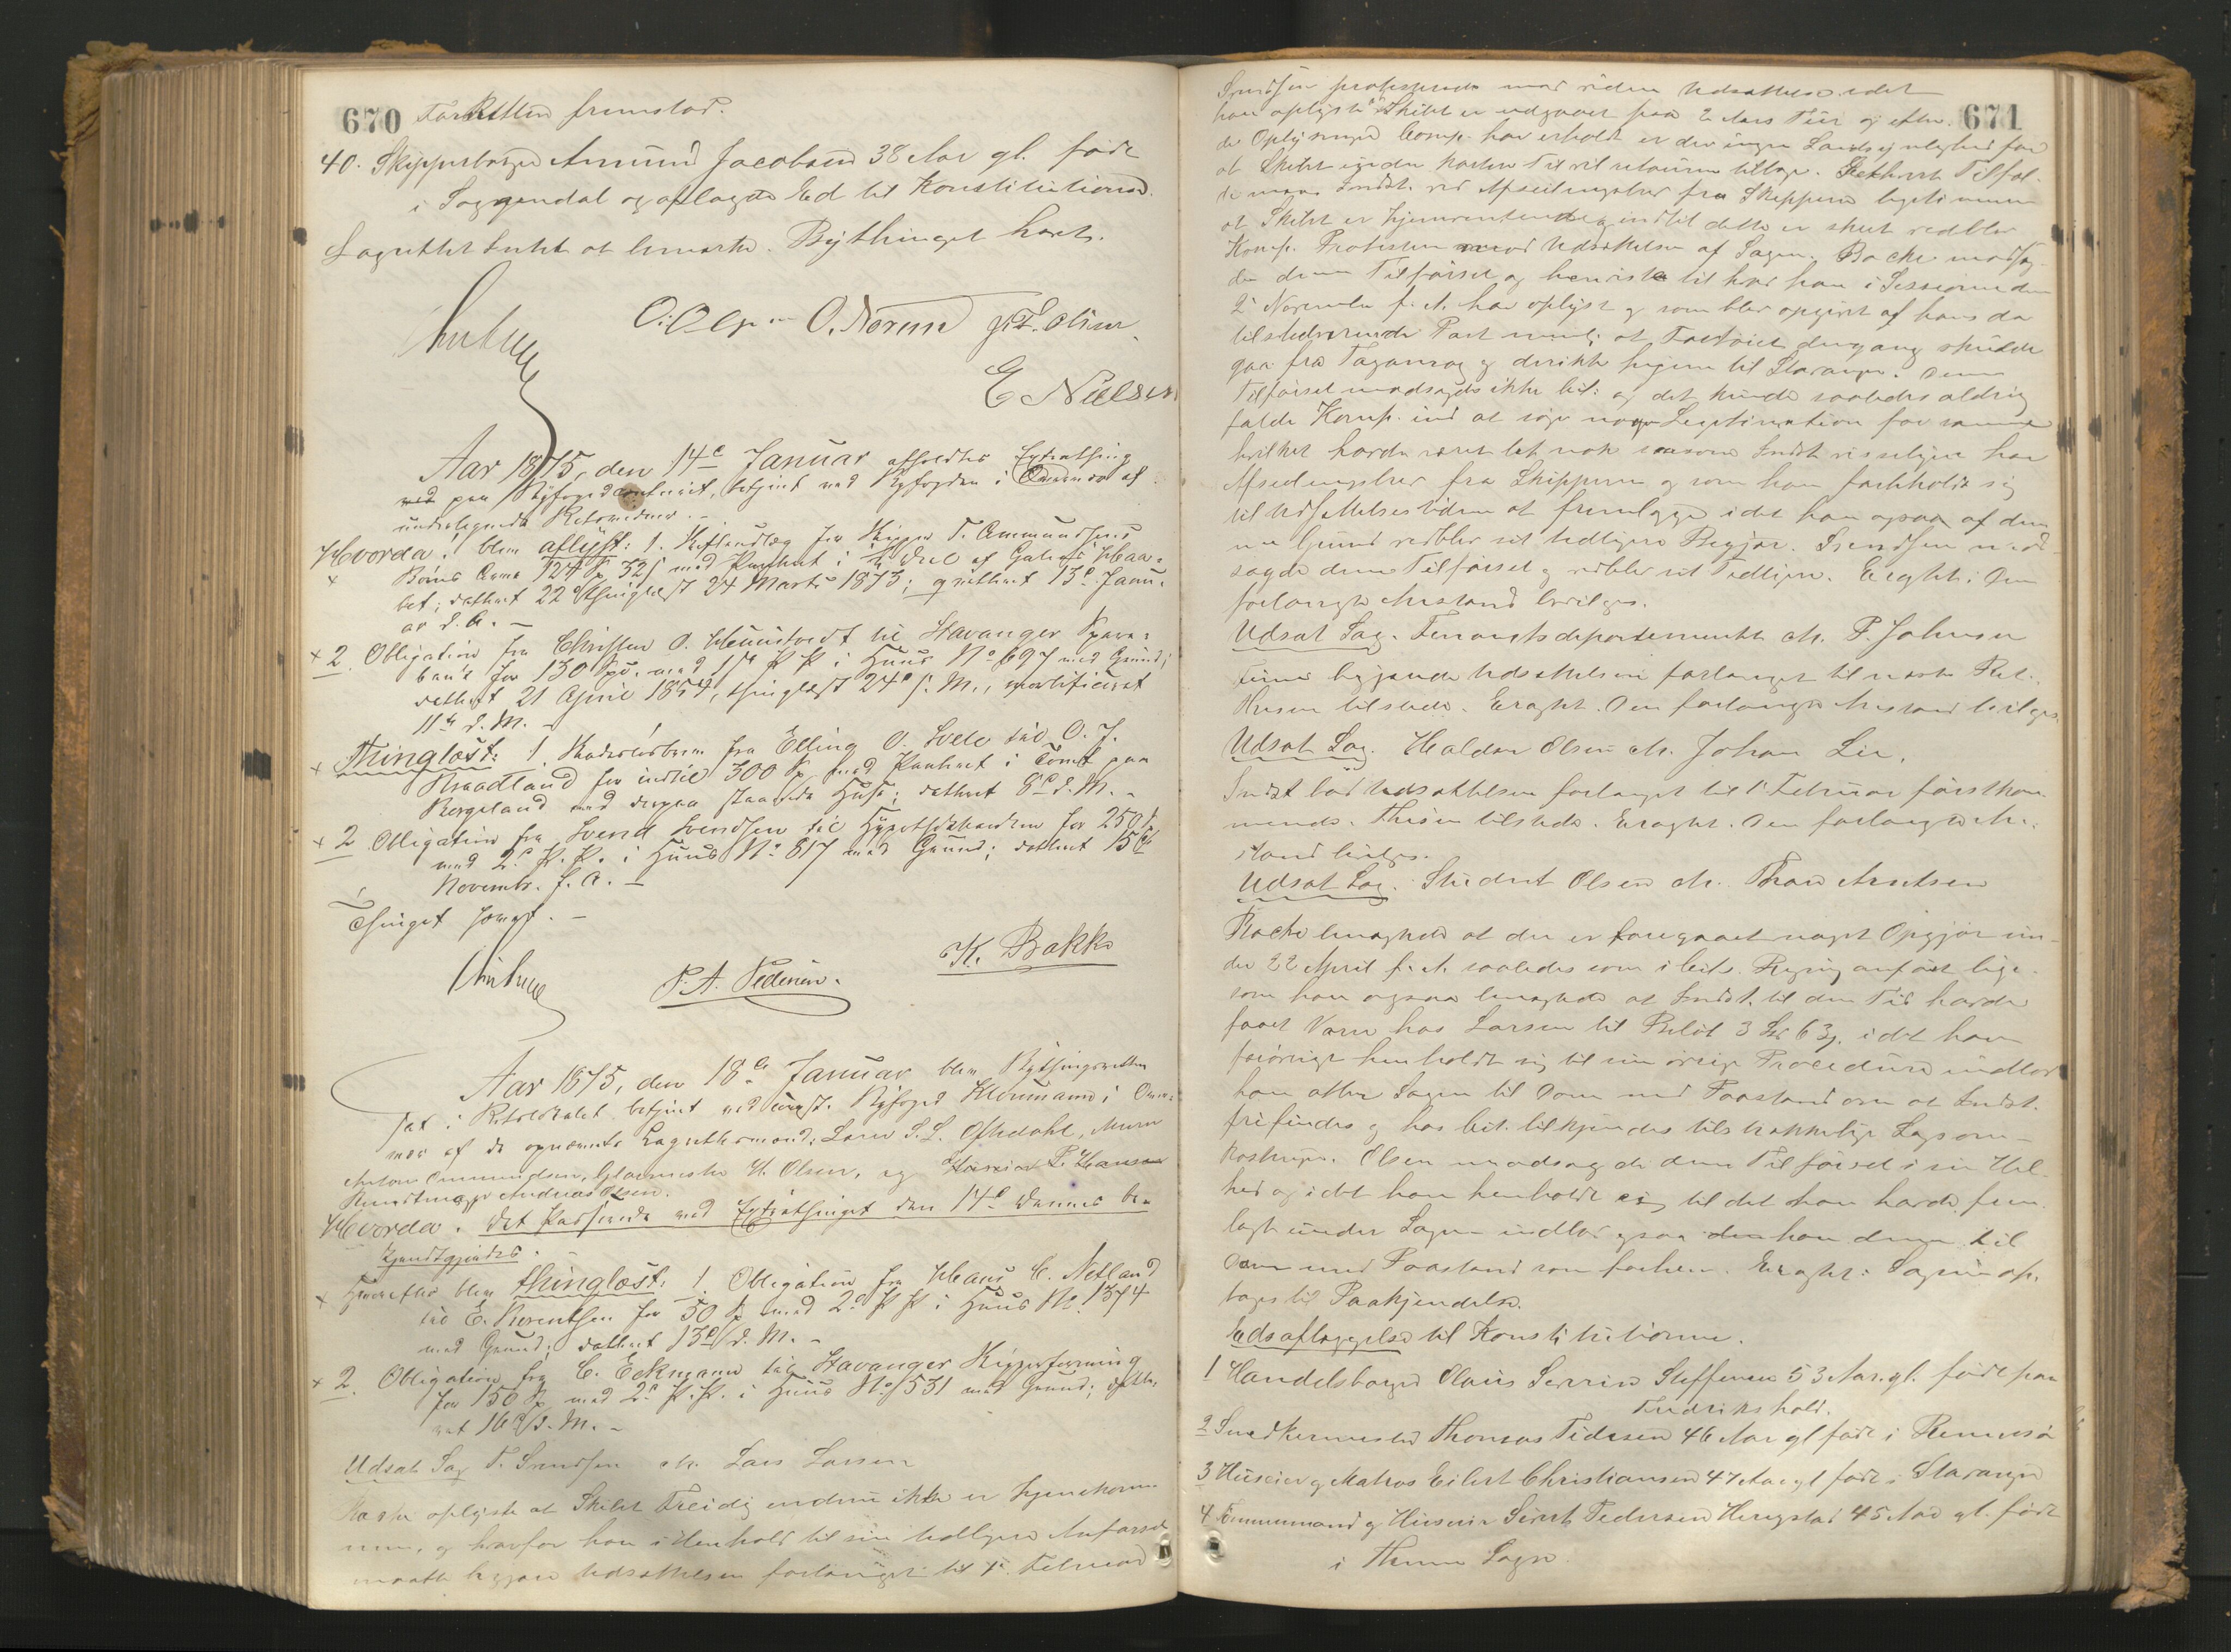 670 For Retten fremstod.
40. Skipperborger Amund Jacobsen 38 Aar gl. født
i Soggendal og aflagde Ed til Konstitutionen.
Lagrettet Intet at bemærke. Bythinget hævet.
O. Olsen O. Norem J. T. Olsen
E Nielsen
Aar 1875, den 14de Januar afholdtes Extrathing
paa Byfogedcontoiret, betjent ved Byfogden i Overvær af
undertegnede Retsvidner.
Hvorda: blev aflyst: 1. Skiftesudlæg for Skipper T. Ommundsens
Børns Arve 124 Sp 52 s med Panteret i ¼ Deel af Galeas "Haa-
bet; dateret 22 thinglæst 24 Marts 1873; qvitteret 13de Janu-
ar d. A. -
2. Obligation fra Christen O. til Stavanger Spare-
bank for 130 Spd. med 1ste Pt Pt i Huus No 697 med Grund;
dateret 21 April 1854, thinglæst 24de s. M., mortificeret
11te d. M. -
Thinglæst: 1. Skadesløsbrev fra Elling O. Svele til O. J.
Braadland for indtil 300 Sp med Panteret i Tomt paa
Bergeland med derpaa staaende Huse; dateret 8de d. M. -
2 Obligation fra Svend Svendsen til Hypothekbanken for 250 Sp
med 2d Pt. Pt. i Huus No 817 med Grund; dateret 15de
Novembr. f. A. -
Thinget hævet. -
P. A. Pedersen. K. Bakke
Aar 1875, den 18de Januar blev Bythingsretten
sat i Retslokalet betjent ved const. Byfoged Kleumann i Over-
vær af de opnævnte Lagrettesmænd: Larer S. L. Oftedahl, Murer
Anton Ommundsen, Glarmester H. Olsen, og P. Hansen
Bundtmager Andreas Olsen.
Hvorda. det Passerede ved Extrathinget den 14de dennes be-
kjendtgjordes.
Herefter blev thinglæst: 1. Obligation fra Hans C. Netland
til E. Berentsen for 50 Sp med 2d Pt Pt i Huus No 1374
med Grund; dateret 13de d. M. -
2. Obligation fra C. Eckmann til Stavanger Skipperforening
for 150 Sp med 2d Pt. Pt. i Huus No 531 med Grund; date-
ret 16de d. M. -
Udsat Sag T. Svendsen ctr. Lars Larsen
Backe oplyste at Skibet Freidig endnu ikke er hjemkom-
men, og hvorfor han i Henhold til sin tidligere Anførsel
maatte begjære Udsættelsen forlænget til 1. Februar
671
Svendsen protesterede mod viden Udsættelse idet
han oplyste at Skibet er udgaaet paa 2 Aars Tur og efter
de Oplysninger Comp. har erholdt er der ingen Sandsynlighed for
at Skibet inden næste Tid vil returnere tilbage. I ethvert Tilfæl-
de maa Indst. ved Afseilingsbrev fra Skipperen legitimere
at Skibet er hjemventende og indtil dette er skeet vedblev
Komp. Protesten mod Udsættelsen af Sagen. Backe modsag-
de denne Tilførsel og henviste til hvad han i Sessionen den
2 November f. A. har oplyst og som blev opgivet af hans da
tilstedeværende Part neml. at Fartøiet dengang skulde
gaa fra Taganrog og direkte hjem til Stavanger. Denne
Tilførsel modsagdes ikke bet: og det kunde saaledes aldrig
falde Komp. ind at søge nogen Legitimation for samme
hvilket havde været let nok saasom Indst visseligen har
Afseilingsbrev fra Skipperen og som han forbeholdt sig
til Udsættelsestiden at fremlægge idet han ogsaa af den-
ne Grund vedblev sit tidligere Begjær. Svendsen mod-
sagde denne Tilførsel og vedblev sit Tidligere. Eragtet: Den
forlangte Anstand bevilges.
Udsat Sag. Finantsdepartementet ctr. P. Johnsen
Feine begjærede Udsættelsen forlænget til næste Ret.
Husen tilstede. Eragtet. Den forlangte Anstand bevilges.
Udsat Sag. Haldor Olsen ctr. Johan Lie.
Indst bad Udsættelsen forlænget til 1 Februar førstkom-
mende. Thisen tilstede. Eragtet. Den forlangte An-
stand bevilges.
Udsat Sag. Student Olsen ctr. Thore Arntsen
Backe benegtede at der er foregaaet noget Opgjør un-
der 22 April f. A. saaledes som i beit. Regning anført lige-
som han ogsaa benegtede at Indst. til den Tid havde
faaet Varer hos Larsen til Beløb 3 Sp 63 s. idet han
forøvrigt henholdt sig til sin øvrige Procedure indlod
han atter Sagen til Doms med Paastand om at Indst.
frifindes og hos bet. tilkjendes tilstrækkelige Sagsom-
kostninger. Olsen modsagde denne Tilførsel i sin Hel-
hed og idet han henholdt sig til det han havde frem-
lagt under Sagen indlod ogsaa han den til
Dom med Paastand som forhen. Eragtet: Sagen op-
tages til Paakjendelse.
Edsaflæggelse til Konstitutionen.
1 Handelsborger Claus Severin Steffensen 53 Aar gl. født paa
Fredrikshald.
2 Snedkermester Thomas Pedersen 46 Aar gl født i Rennesø
3 Huseier og Matros Eilert Christiansen 47 Aar gl født i Stavanger
4 Tømmermand og Huseier Sivert Pedersen Hengstad 45 Aar gl. født
i Thime Sogn